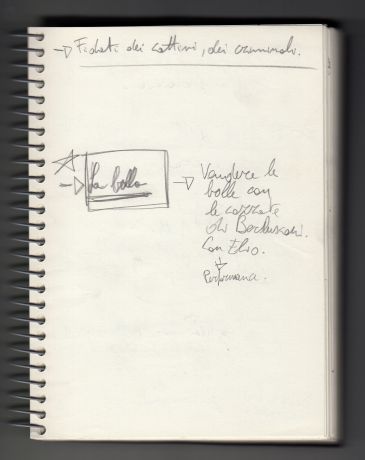 Fidati dei cattivi, dei criminali.
La bolla
Vendere le
bolle con
le cazzate
di Berlusconi.
Con Elio.
Performance.